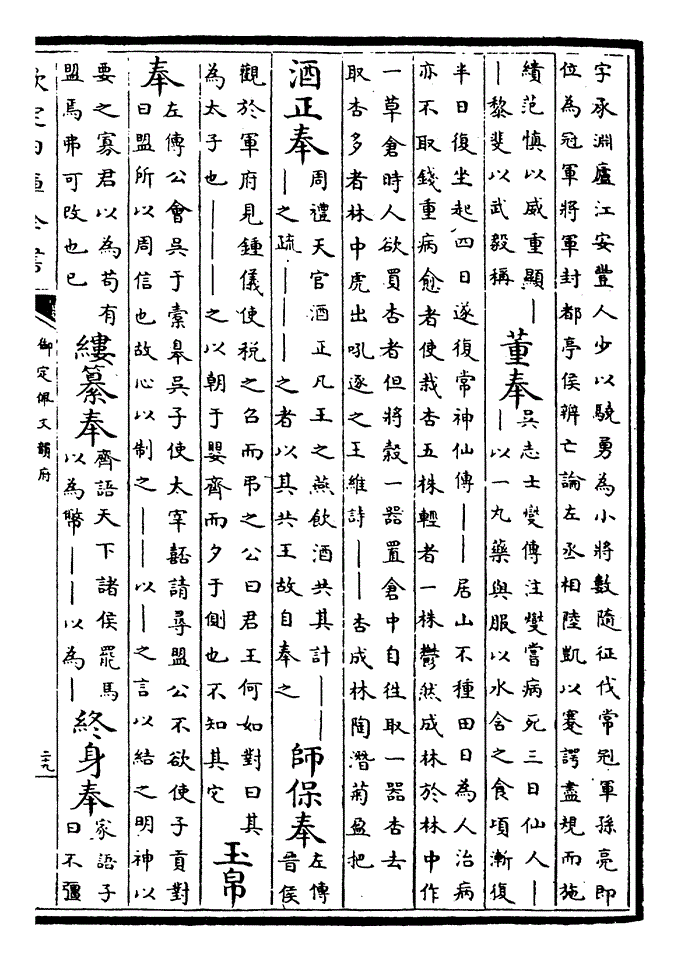 字承淵廬江安豐人少以驍勇為小將數隨征伐常冠軍孫亮即
位為冠軍將軍封都亭侯辨亡論左丞相陸凱以蹇諤盡規而施
績范慎以威重顯—
—黎斐以武毅稱
董奉
吳志士燮傳注燮嘗病死三日仙人—
—以一丸藥與服以水含之食頃漸復
半日復坐起四日遂復常神仙傳——居山不種田日為人治病
亦不取錢重病愈者使栽杏五株輕者一株鬱然成林於林中作
一草倉時人欲買杏者但將穀一器置倉中自徃取一器杏去
取杏多者林中虎出吼逐之王維詩——杏成林陶潛菊盈把
酒正奉
周禮天官酒正凡王之燕飲酒共其計——
—之疏———之者以其共王故自奉之
師保奉
左傳
晉侯
觀於軍府見鍾儀使税之召而弔之公曰君王何如對曰其
為太子也———之以朝于嬰齊而夕于側也不知其它
玉帛
奉
左傳公會吳于橐皋吳子使太宰嚭請尋盟公不欲使子貢對
曰盟所以周信也故心以制之——以—之言以結之明神以
要之寡君以為苟有
盟馬弗可改也已
縷纂奉
齊語天下諸侯罷馬
以為幣———以為—
終身奉
家語子
曰不彊
欽定四庫全書
御定佩文韻府
二十九